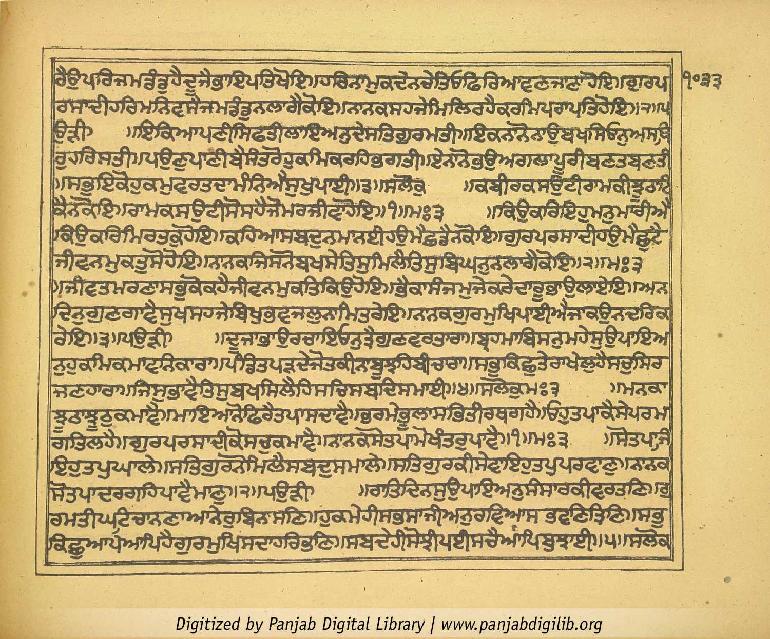 ਰੈਉਪਰਿਜਮਡੰਡੁਹੈਦੂਜੈਭਾਇਪਤਿਖੋਇ॥ਹਰਿਨਾਮੁਕਦੇਨਚੇਤਿਓਫਿਰਿਆਵਣਜਾਣਾਹੋਇ॥ਗੁਰਪ
੧੦੩੩
ਰਸਾਦੀਹਰਿਮਨਿਵਸੈਜਮਡੰਡੁਨਲਾਗੈਕੋਇ॥ਨਾਨਕਸਹਜੇਮਿਲਿਰਹੈਕਰਮਿਪਰਾਪਤਿਹੋਇ॥੨॥ਪ
ਉੜੀ ॥ਇਕਿਆਪਣੀਸਿਫਤੀਲਾਇਅਨੁਦੇਸਤਿਗੁਰਮਤੀ॥ਇਕਨਾਨੋਨਾਉਬਖਸਿਓਨੁਅਸਥਿ
ਰੁਹਰਿਸਤੀ॥ਪਉਣੁਪਾਣੀਬੈਸੰਤਰੋਹੁਕਮਿਕਰਹਿਭਗਤੀ॥ਏਨਾਨੋਭਉਅਗਲਾਪੂਰੀਬਣਤਬਣਤੀ
॥ਸਭੁਇਕੋਹੁਕਮੁਵਰਤਦਾਮੰਨਿਐਸੁਖੁਪਾਈ॥੩॥ਸਲੋਕੁ ॥ਕਬੀਰਕਸਉਟੀਰਾਮਕੀਝੂਠਾਟਿ
ਕੈਨਕੋਇ॥ਰਾਮਕਸਉਟੀਸੋਸਹੈਜੋਮਰਜੀਵਾਹੋਇ॥੧॥ਮਃ੩ ॥ਕਿਉਕਰਿਇਹੁਮਨੁਮਾਰੀਐ
ਕਿਉਕਰਿਮਿਰਤਕੁਹੋਇ॥ਕਹਿਆਸਬਦੁਨਮਾਨਈਹਉਮੈਛਡੈਨਕੋਇ॥ਗੁਰਪਰਸਾਦੀਹਉਮੈਛੁਟੈ
ਜੀਵਨਮੁਕਤੁਸੋਹੋਇ॥ਨਾਨਕਜਿਸਨੋਬਖਸੇਤਿਸੁਮਿਲੈਤਿਸੁਬਿਘਨੁਨਲਾਗੈਕੋਇ॥੨॥ਮਃ੩
॥ਜੀਵਤਮਰਣਾਸਭੁਕੋਕਹੈਜੀਵਨਮੁਕਤਿਕਿਉਹੋਇ॥ਭੈਕਾਸੰਜਮੁਜੇਕਰੇਦਾਰੂਭਾਉਲਾਏਇ॥ਅਨ
ਦਿਨੁਗੁਣਗਾਵੈਸੁਖਸਹਜੇਬਿਖੁਭਵਜਲੁਨਾਮਿਤਰੇਇ॥ਨਾਨਕਗੁਰਮੁਖਿਪਾਈਐਜਾਕਉਨਦਰਿਕ
ਰੇਇ॥੩॥ਪਉੜੀ ॥ਦੂਜਾਭਾਉਰਚਾਇਓਨੁਤ੍ਰੈਗੁਣਵਰਤਾਰਾ॥ਬ੍ਰਹਮਾਬਿਸਨੁਮਹੇਸੁਉਪਾਇਅ
ਨੁਹੁਕਮਿਕਮਾਵਨਿਕਾਰਾ॥ਪੰਡਿਤਪੜਦੇਜੋਤਕੀਨਾਬੂਝਹਿਬੀਚਾਰਾ॥ਸਭੁਕਿਛੁਤੇਰਾਖੇਲੁਹੈਸਚੁਸਿਰ
ਜਣਹਾਰਾ॥ਜਿਸੁਭਾਵੈਤਿਸੁਬਖਸਿਲੈਹਿਸਚਿਸਬਦਿਸਮਾਈ॥੪॥ਸਲੋਕੁਮਃ੩ ॥ਮਨਕਾ
ਝੂਠਾਝੂਠੁਕਮਾਵੈ॥ਮਾਇਆਨੋਫਿਰੈਤਪਾਸਦਾਵੈ॥ਭਰਮੇਭੂਲਾਸਭਿਤੀਰਥਗਹੈ॥ਓਹੁਤਪਾਕੈਸੇਪਰਮ
ਗਤਿਲਹੈ॥ਗੁਰਪਰਸਾਦੀਕੋਸਚੁਕਮਾਵੈ॥ਨਾਨਕਸੋਤਪਾਮੋਖੰਤਰੁਪਾਵੈ॥੧॥ਮਃ੩ ॥ਸੋਤਪਾਜਿ
ਇਹੁਤਪੁਘਾਲੇ॥ਸਤਿਗੁਰਨੋਮਿਲੈਸਬਦੁਸਮਾਲੇ॥ਸਤਿਗੁਰਕੀਸੇਵਾਇਹੁਤਪੁਪਰਵਾਣੁ॥ਨਾਨਕ
ਸੋਤਪਾਦਰਗਹਿਪਾਵੈਮਾਣੁ॥੨॥ਪਉੜੀ ॥ਰਾਤਿਦਿਨਸੁਉਪਾਇਅਨੁਸੰਸਾਰਕੀਵਰਤਣਿ॥ਗੁ
ਰਮਤੀਘਟਿਚਾਨਣਾਆਨੇਰੁਬਿਨਾਸਣਿ॥ਹੁਕਮੇਹੀਸਭਸਾਜੀਅਨੁਰਵਿਆਸਭਵਣਿਤ੍ਰਿਣਿ॥ਸਭੁ
ਕਿਛੁਆਪੇਆਪਿਹੈਗੁਰਮੁਖਿਸਦਾਹਰਿਭਣਿ॥ਸਬਦੇਹੀਸੋਝੀਪਈਸਚੈਆਪਿਬੁਝਾਈ॥੫॥ਸਲੋਕ
Digitized by Panjab Digital Library | www.panjabdigilib.org